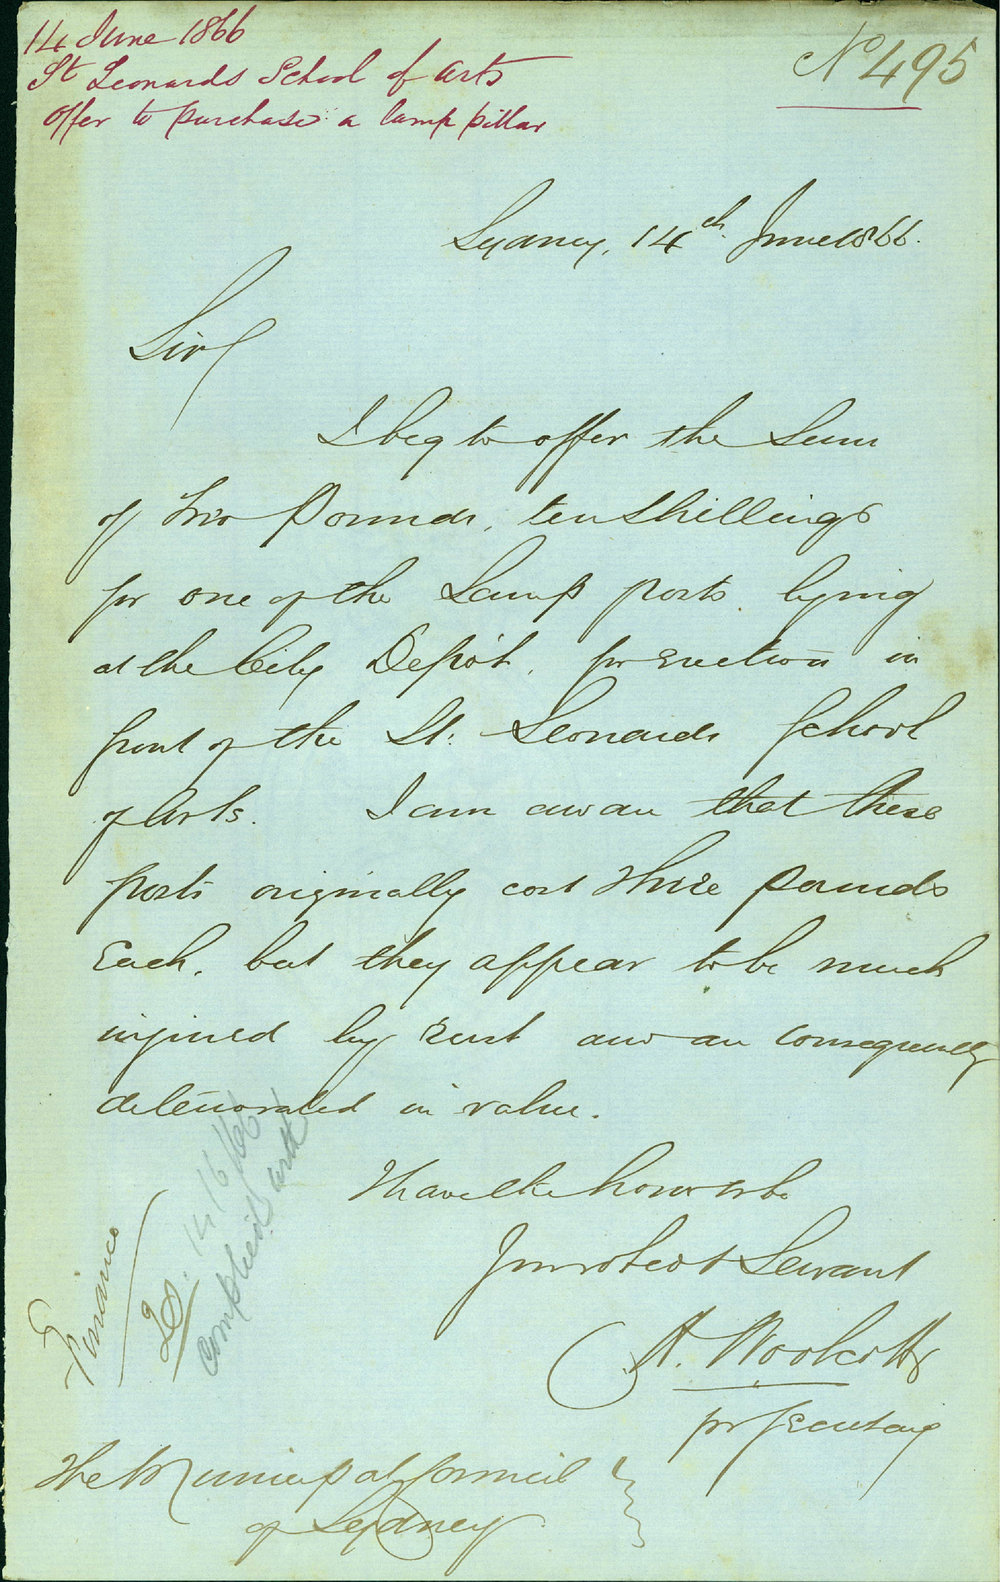 14 June 1866
St Leonards School of Arts
Offer to purchase a lamp pillar
No 495
Sydney, 14th June 1866.
Sir
I beg to offer the Sum
of Two Pounds, ten Shillings
for one of the Lamp posts lying
at the City Depôt, for erection in
front of the St. Leonards School
of Arts. I am aware that these
posts originally cost three pounds
Each, but they appear to be much
injured by rust and are consequently
deteriorated in value.
I have the honor to be
Yr most obedt Servant
A. Woolcott
pr Secretary
The Municipal Council
of Sydney
Finance
14/6/66
Complied with